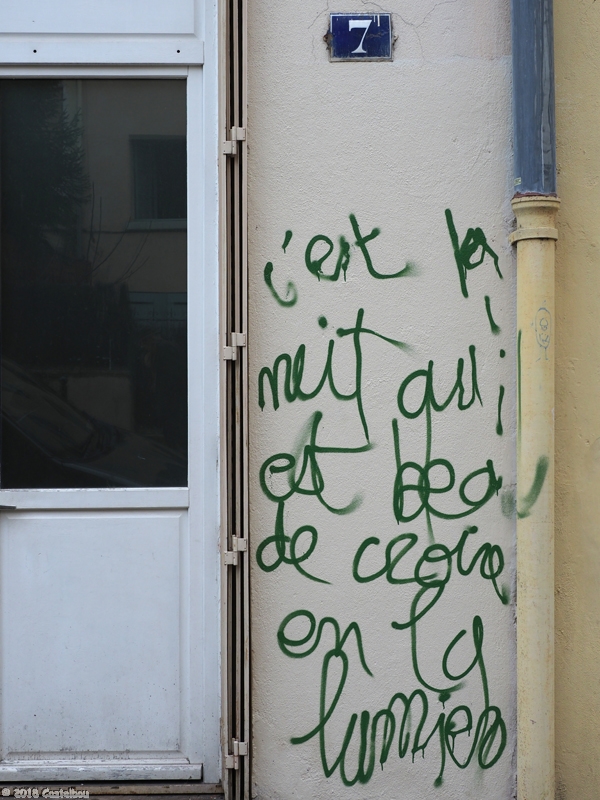 7"
c'est la
nuit qui
est beau
de croire
en la
lumière
© 2018 Castelbou